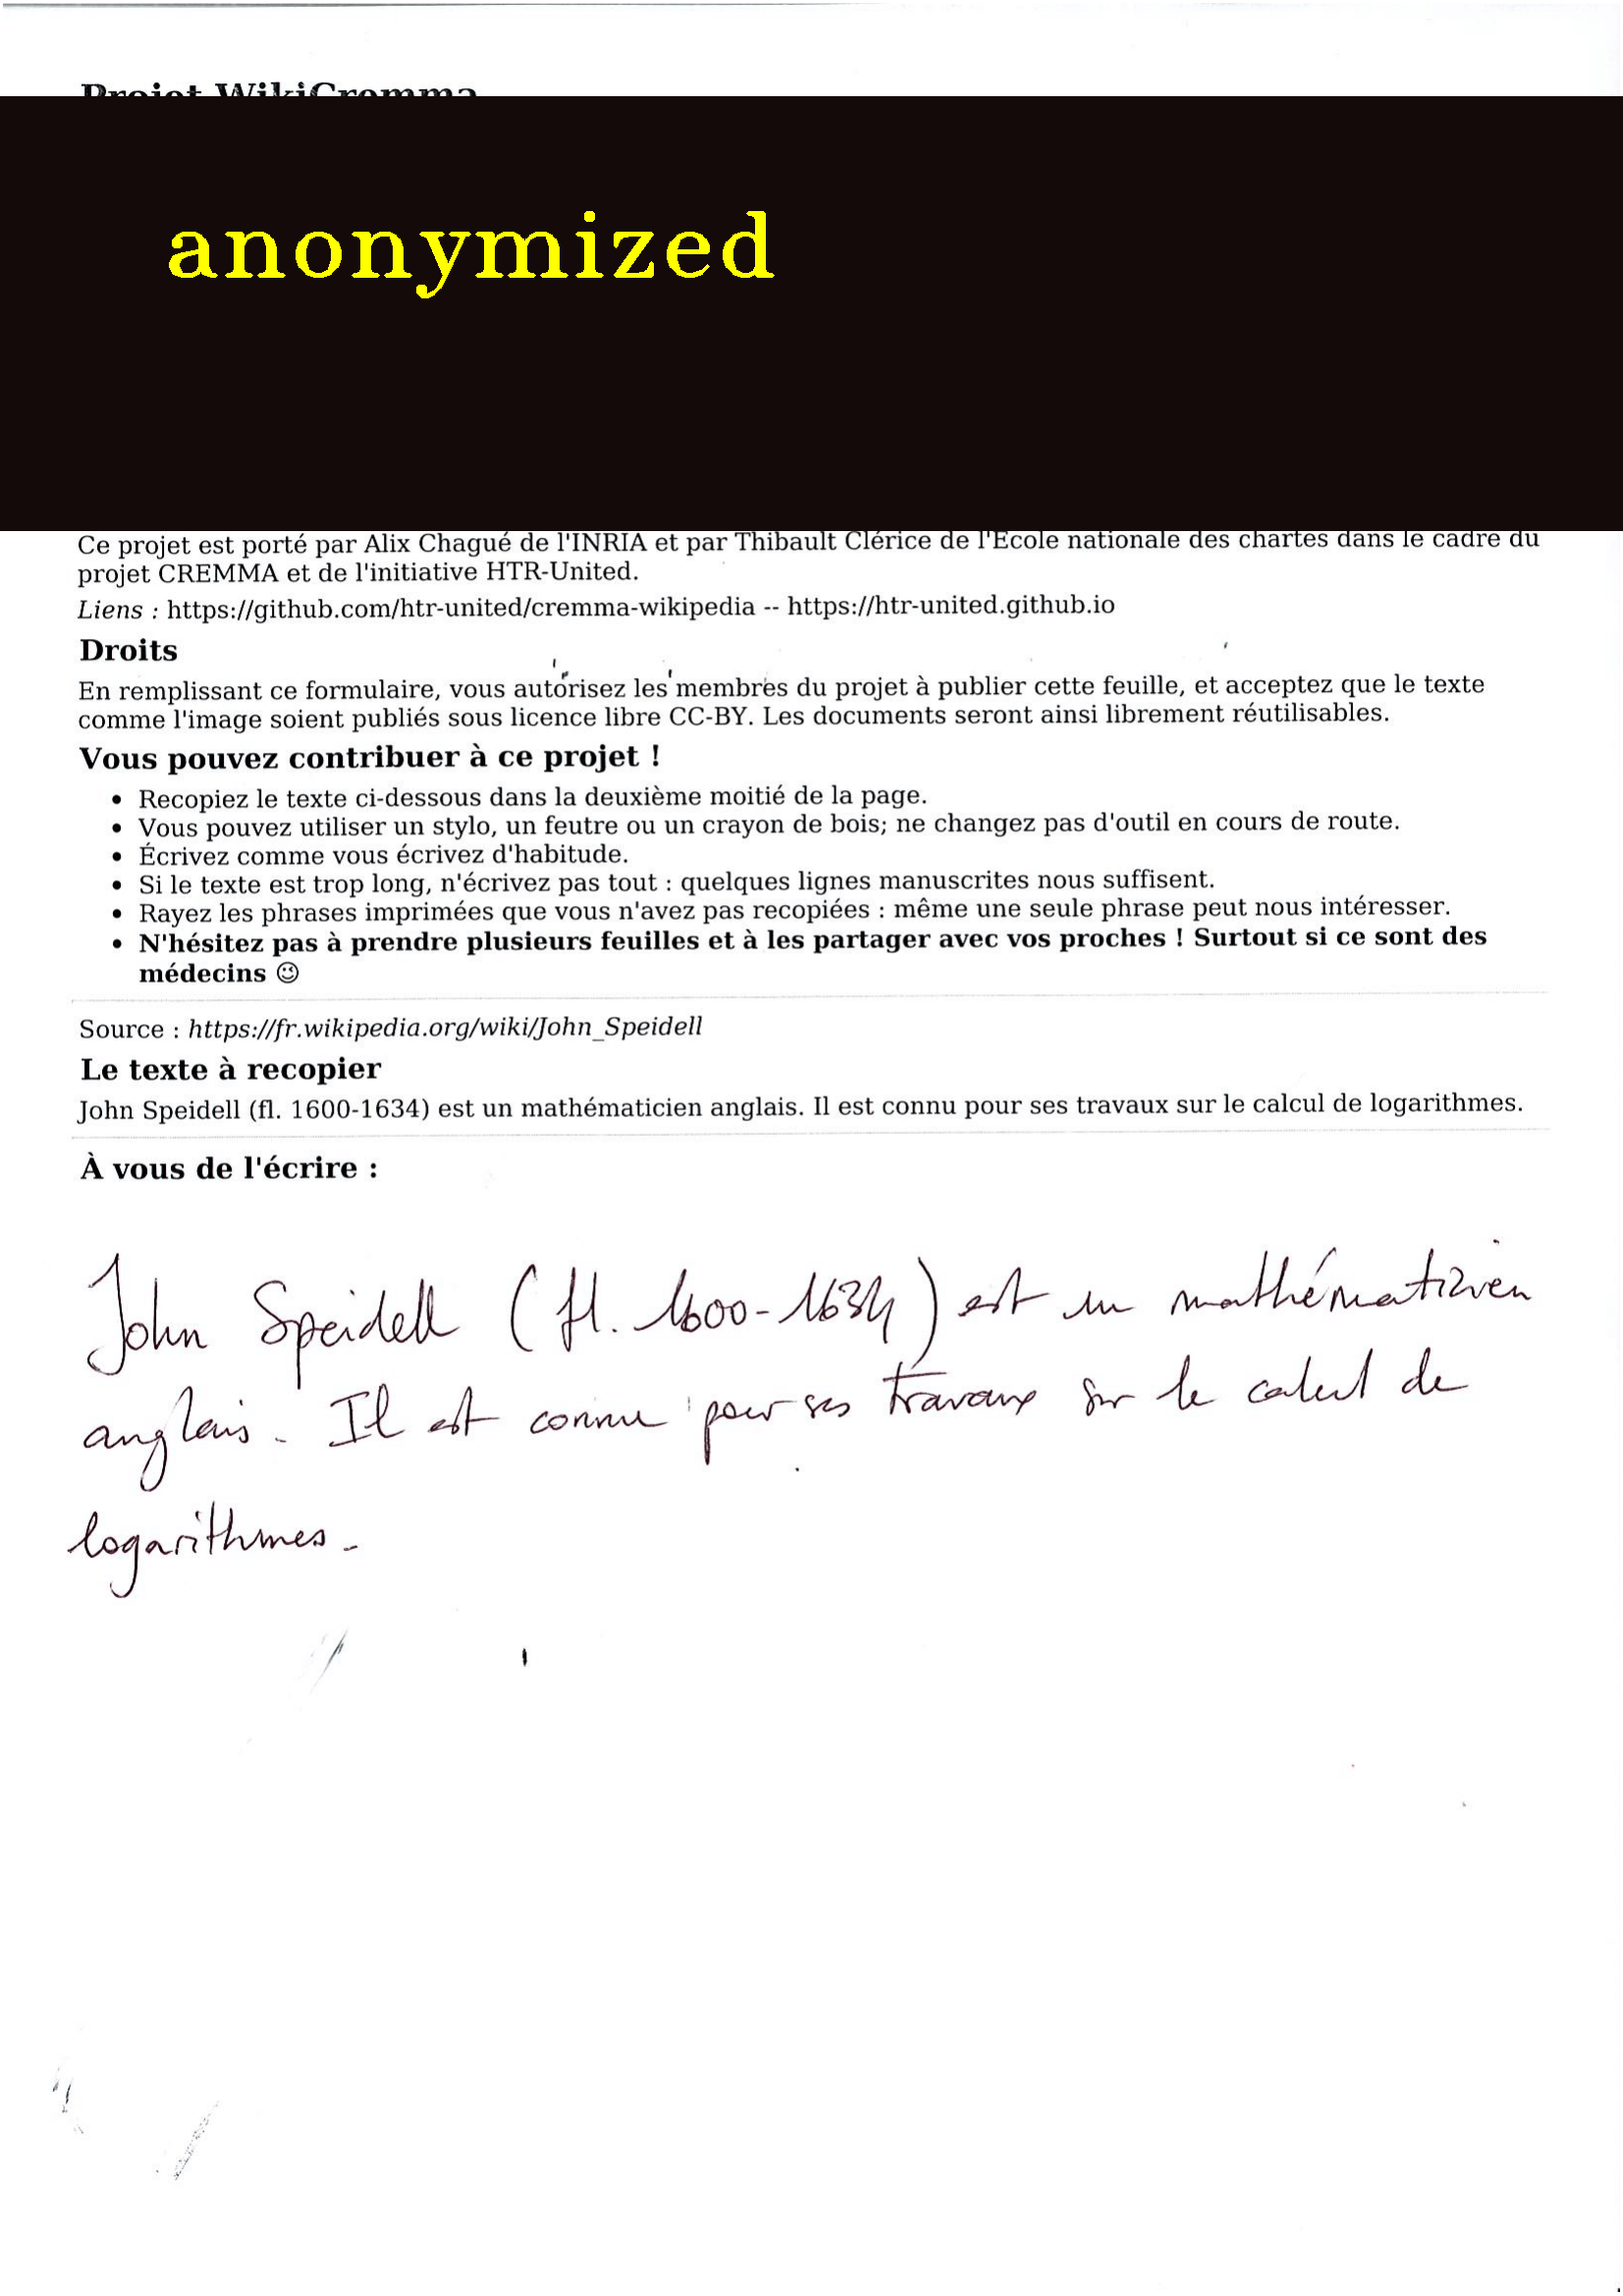 Projet WikiCremma
anonymized
Ce projet est porté par Alix Chagué de l'INRIA et par Thibault Clérice de l'École nationale des chartes dans le cadre du
projet CREMMA et de l'initiative HTR-United.
Liens : https://github.com/htr-united/cremma-wikipedia -- https://htr-united.github.io
Droits
En remplissant ce formulaire, vous autorisez les membres du projet à publier cette feuille, et acceptez que le texte
comme l'image soient publiés sous licence libre CC-BY. Les documents seront ainsi librement réutilisables.
Vous pouvez contribuer à ce projet !
• Recopiez le texte ci-dessous dans la deuxième moitié de la page.
• Vous pouvez utiliser un stylo, un feutre ou un crayon de bois; ne changez pas d'outil en cours de route.
• Écrivez comme vous écrivez d'habitude.
• Si le texte est trop long, n'écrivez pas tout : quelques lignes manuscrites nous suffisent.
• Rayez les phrases imprimées que vous n'avez pas recopiées : même une seule phrase peut nous intéresser.
• N'hésitez pas à prendre plusieurs feuilles et à les partager avec vos proches ! Surtout si ce sont des
médecins 😉
Source : https://fr.wikipedia.org/wiki/John_Speidell
Le texte à recopier
John Speidell (fl. 1600-1634) est un mathématicien anglais. Il est connu pour ses travaux sur le calcul de logarithmes.
À vous de l'écrire :
John Speidell (fl. 1600-1634) est un mathématicien
anglais. Il est connu pour ses travaux sur le calcul de
logarithmes.